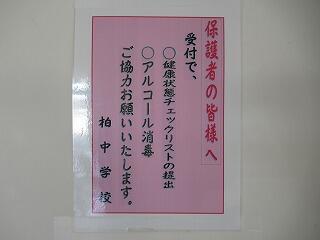 保護者の皆様へ
受付で、
○健康状態チェックリストの提出
○アルコール消毒
ご協力お願いいたします。
柏中学校